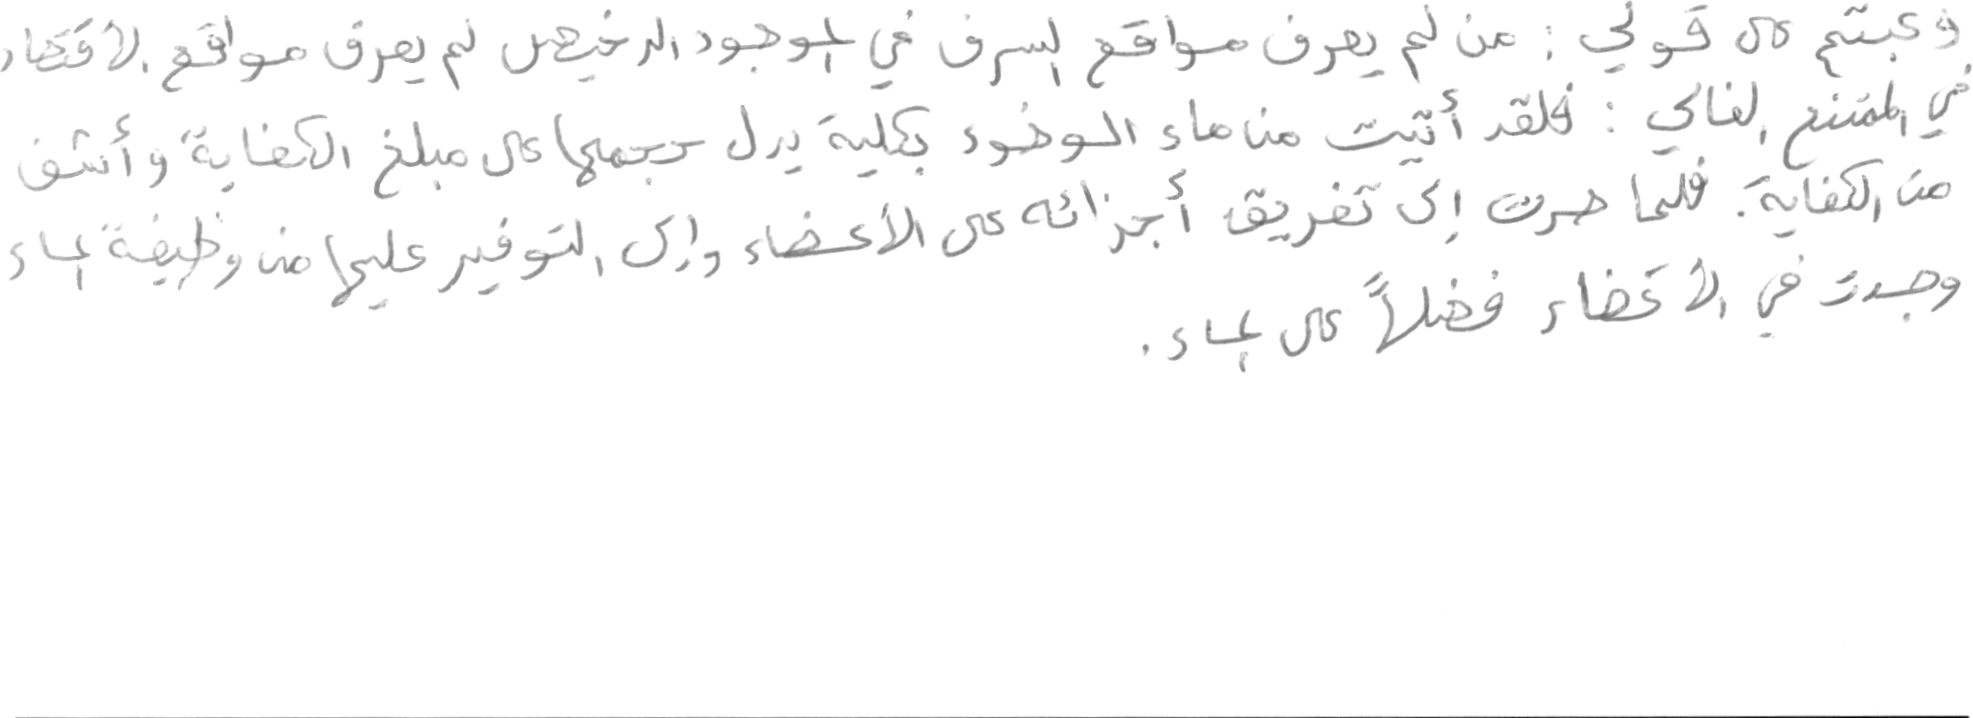 وعبتم على قولي : من لم يعرف مواقع السرف في الموجود الرخيص لم يعرف مواقع الاقتصاد
في الممتنع الغالي : فلقد أتيت من ماء الوضوء بكلية يدل حجمها على مبلغ الكفاية وأشف
من الكفاية . فلما صرت إلى تفريق أجزائه على الأعضاء وإلى التوفير عليها من وظيفة الماء
وجدت في الأعضاء فضلاً على الماء .